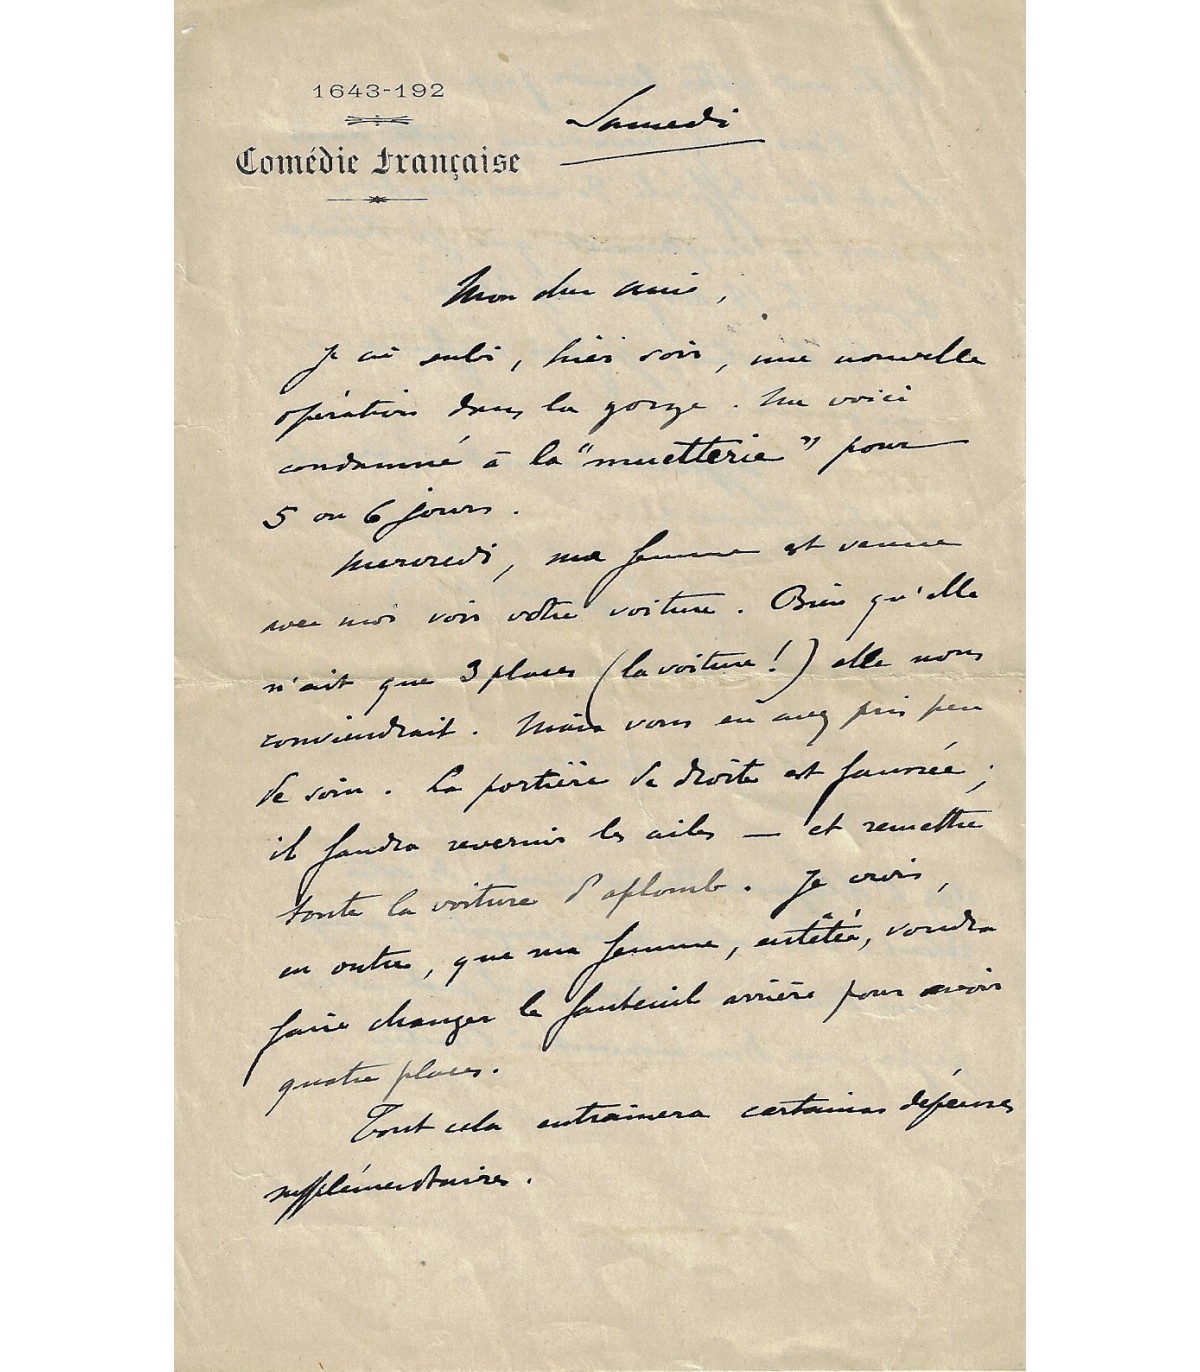 1643-192
Comédie Française
Samedi
Mon cher ami,
J'ai subi, hier soir, une nouvelle
opération dans la gorge. Me voici
condamné à la "muetterie" pour
5 ou 6 jours.
Mercredi, ma femme est venue
avec moi voir votre voiture. Bien qu'elle
n'ait que 3 places (la voiture!) elle nous
conviendrait. Mais vous en avez pris peu
de soin. La portière de droite est faussée;
il faudra revernir les ailes — et remettre
toute la voiture d'aplomb. Je crois,
en outre, que ma femme, entêtée, voudra
faire changer le fauteuil arrière pour avoir
quatre places.
Tout cela entrainera certaines dépenses
supplémentaires.